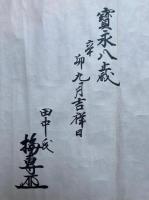 寳永八歳
辛卯九月吉祥日
田中氏